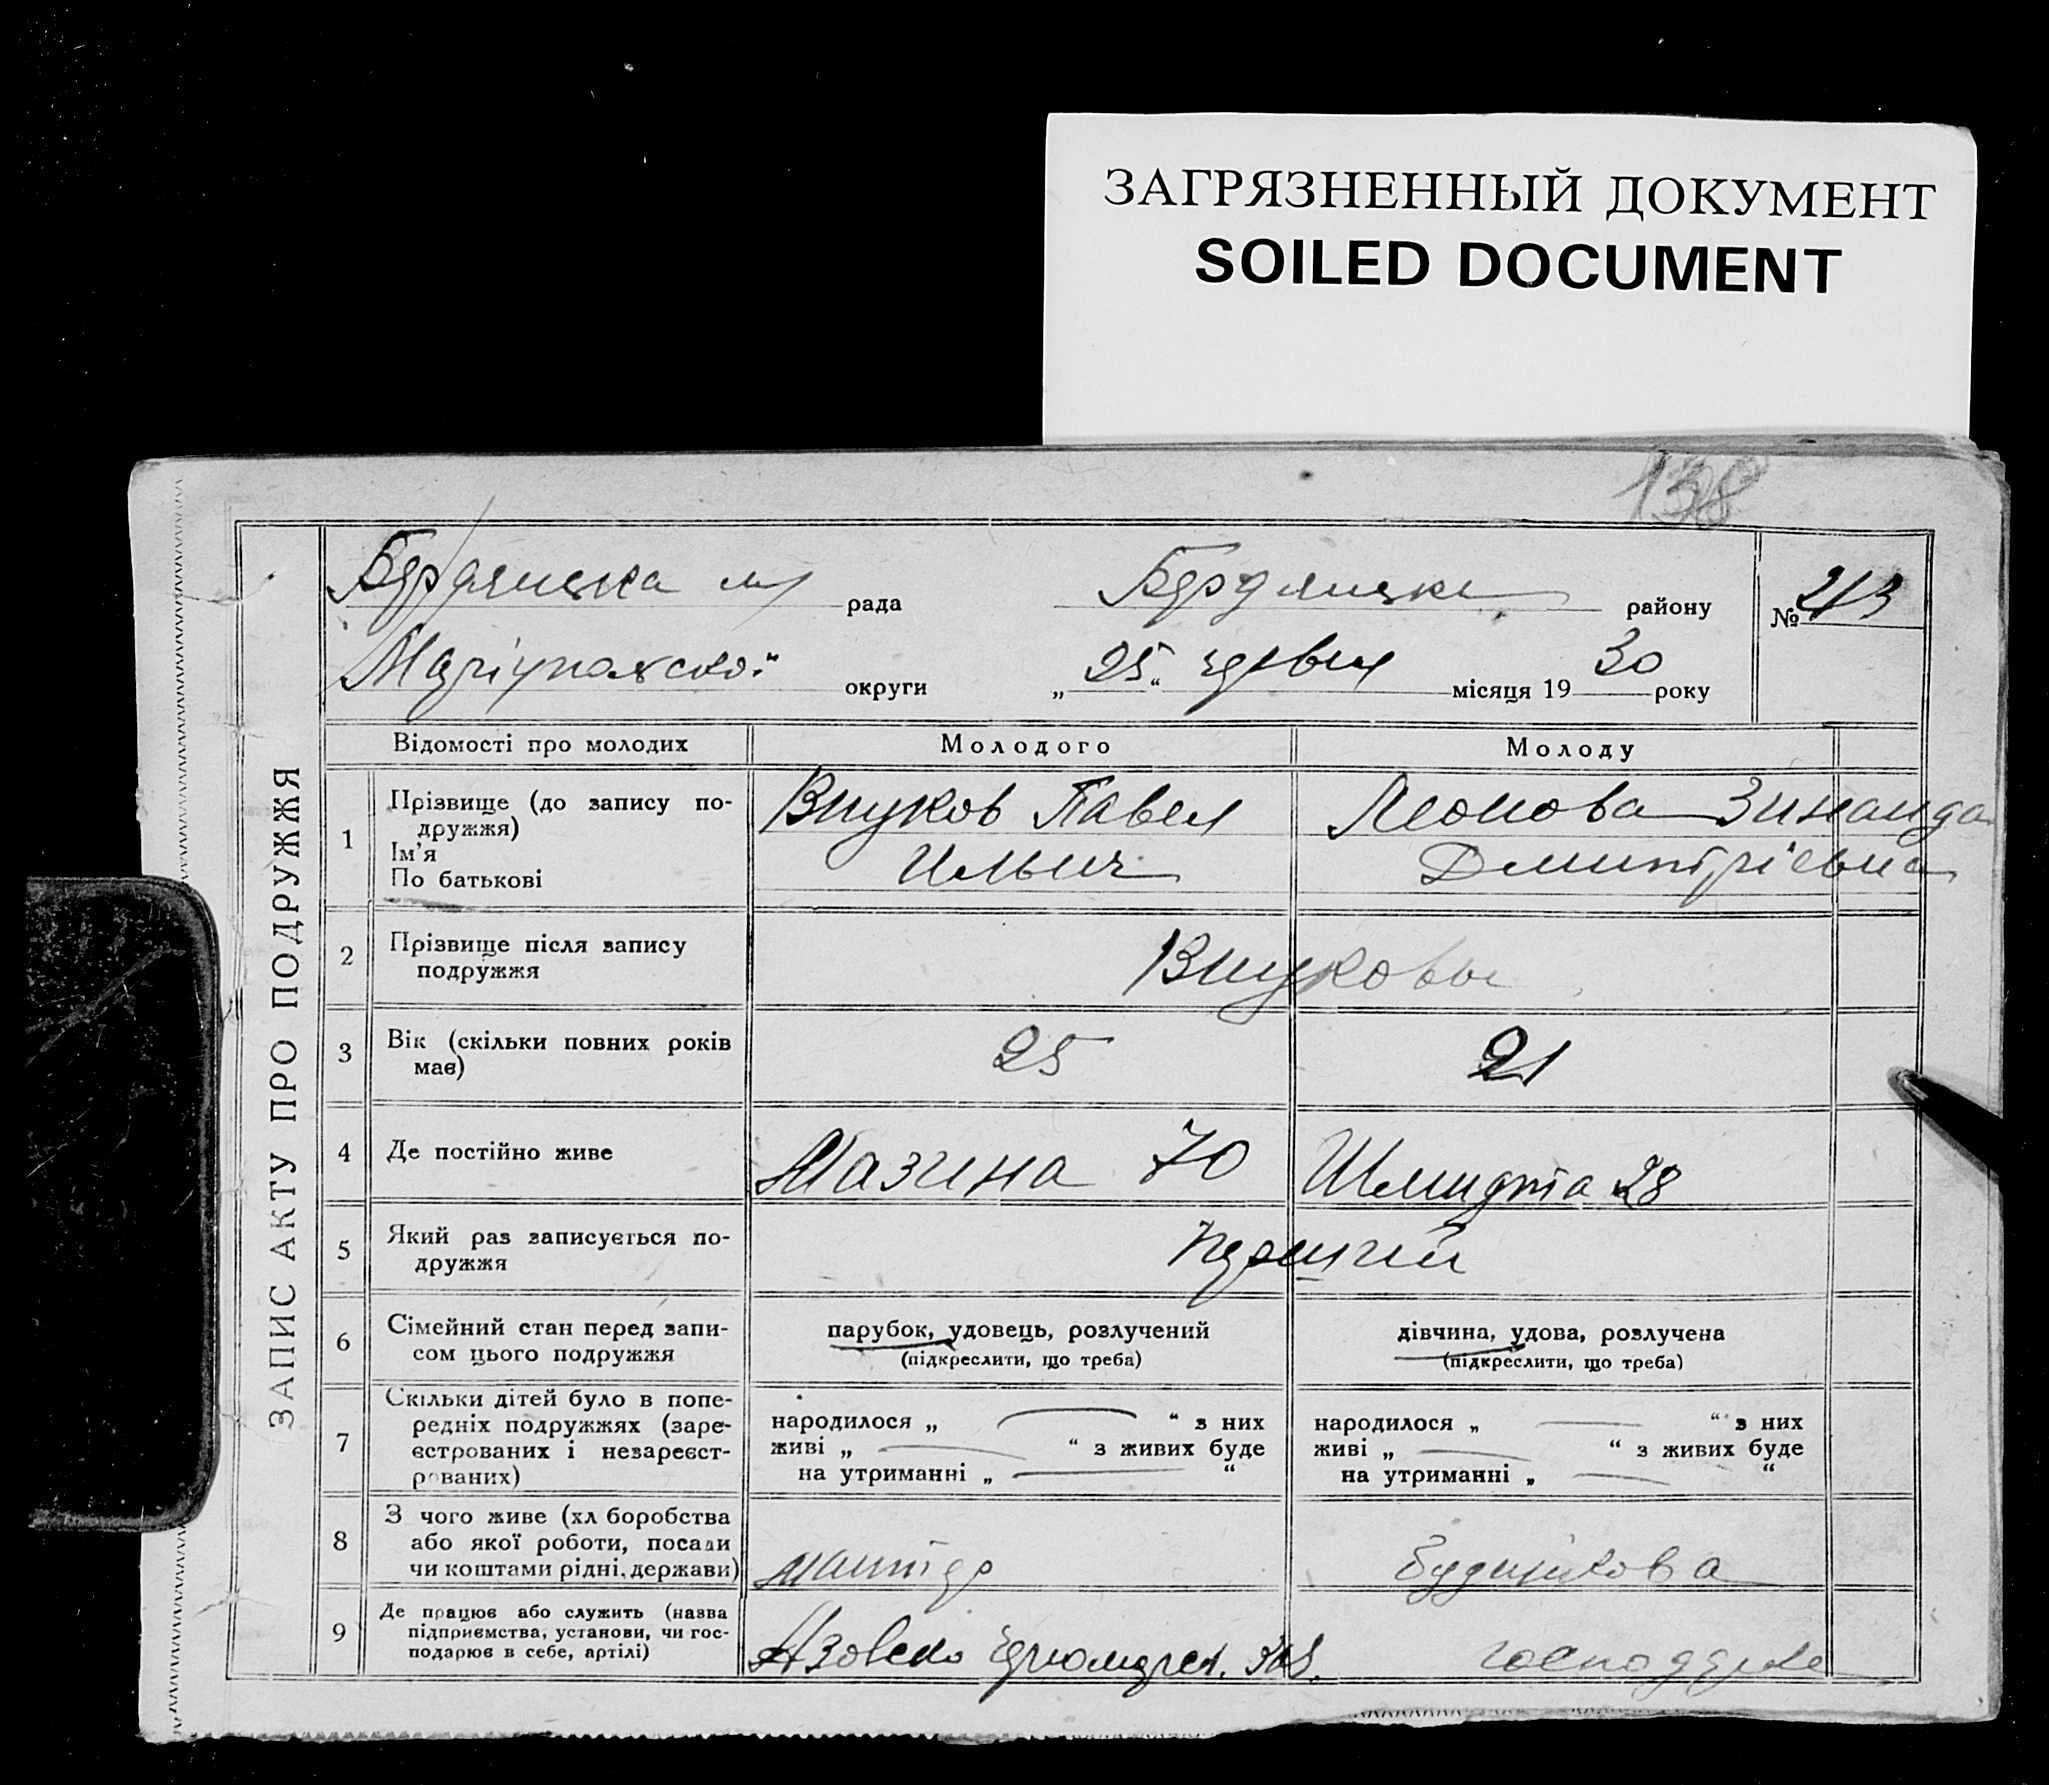 ЗАГРЯЗНЕННЫЙ ДОКУМЕНТ
SOILED DOCUMENT
138
ЗАПИС АКТУ ПРО ПОДРУЖЖЯ
Бердянська м рада Бердянськ району № 213
Маріупольської округи „25“ червня місяця 1930 року
Відомості про молодих Молодого Молоду
1 Прізвище (до запису по-
дружжя)
Ім'я
По батькові
Внуков Павел
Ильич
Леонова Зинаида
Дмитріевна
2 Прізвище після запису
подружжя
Внуковы
3 Вік (скільки повних років
має)
25 21
4 Де постійно живе Мазина 70 Шмидта 28
5 Який раз записується по-
дружжя
перший
6 Сімейний стан перед запи-
сом цього подружжя
парубок, удовець, розлучений
(підкреслити, що треба)
дівчина, удова, розлучена
(підкреслити, що треба)
7 Скільки дітей було в попе-
редніх подружжях (заре-
єстрованих і незареєст-
рованих)
народилося „ — “ з них
живі „ — “ з живих буде
на утриманні „ — “
народилося „ — “ з них
живі „ — “ з живих буде
на утриманні „ — “
8 З чого живе (хлiборобства
або якої роботи, посади
чи коштами рідні, держави)
9 Де працює або служить (назва
підприємства, установи, чи гос-
подарює в себе, артілі)
Азовско Черноморск.